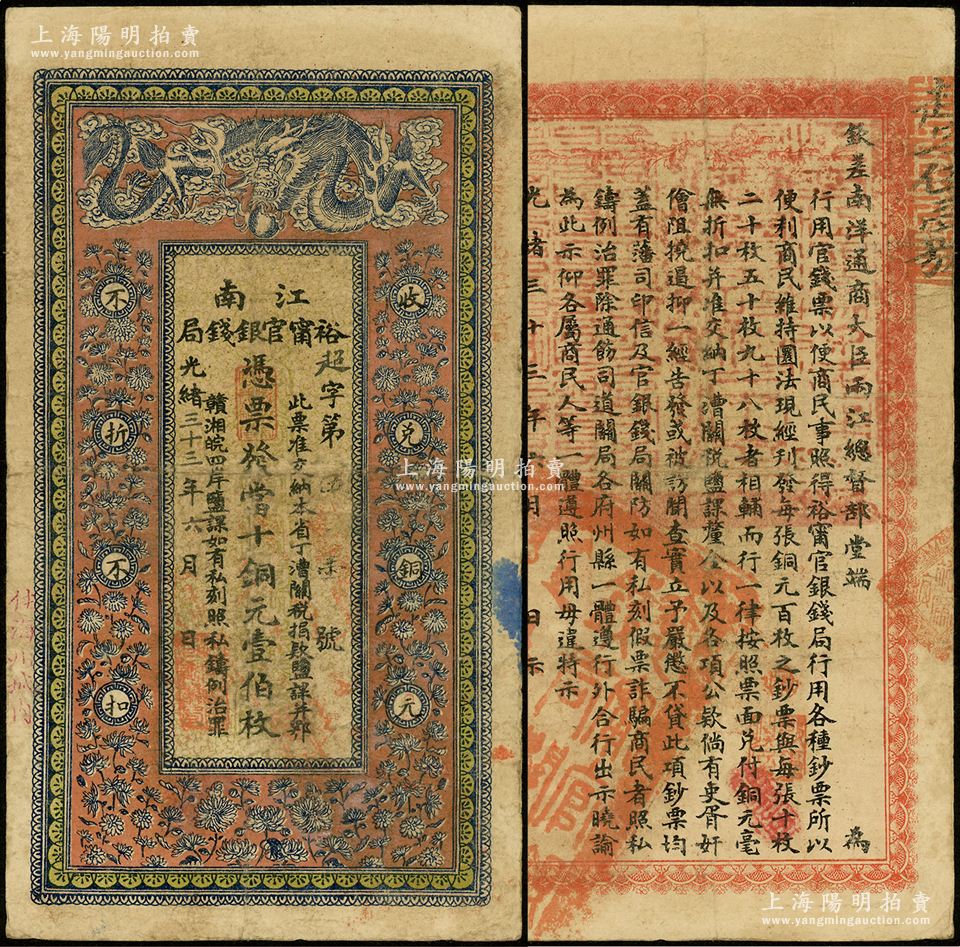 上海陽明拍賣
www.yangmingauction.com
江南
裕甯官銀錢局
字第
號
憑票發當十銅元壹佰枚
此票准交納本省丁漕關稅捐款鹽課并鄂
贛湘皖四岸鹽課如有私刻照私鑄例治罪
光緒三十三年六月 日
收兌銅元
不折不扣
上海陽明拍賣
www.yangmingauction.com
欽差南洋通商大臣兩江總督部堂端 為
行用官錢票以便商民事照得裕甯官銀錢局行用各種鈔票所以
便利商民維持圜法現經刊發每張銅元百枚之鈔票與每張十枚
二十枚五十枚九十八枚者相輔而行一律按照票面兌付銅元毫
無折扣并准交納丁漕關稅鹽課釐金以及各項公欵倘有吏胥奸
儈阻撓遏抑一經告發或被訪聞查實立予嚴懲不貸此項鈔票均
蓋有藩司印信及官銀錢局關防如有私刻假票詐騙商民者照私
鑄例治罪除通飭司道關局各府州縣一體遵行外合行出示曉諭
為此示仰各屬商民人等一體遵照行用毋違特示
光緒三十三年 月 日示
上海陽明拍賣
www.yangmingauction.com
上海陽明拍賣
www.yangmingauction.com